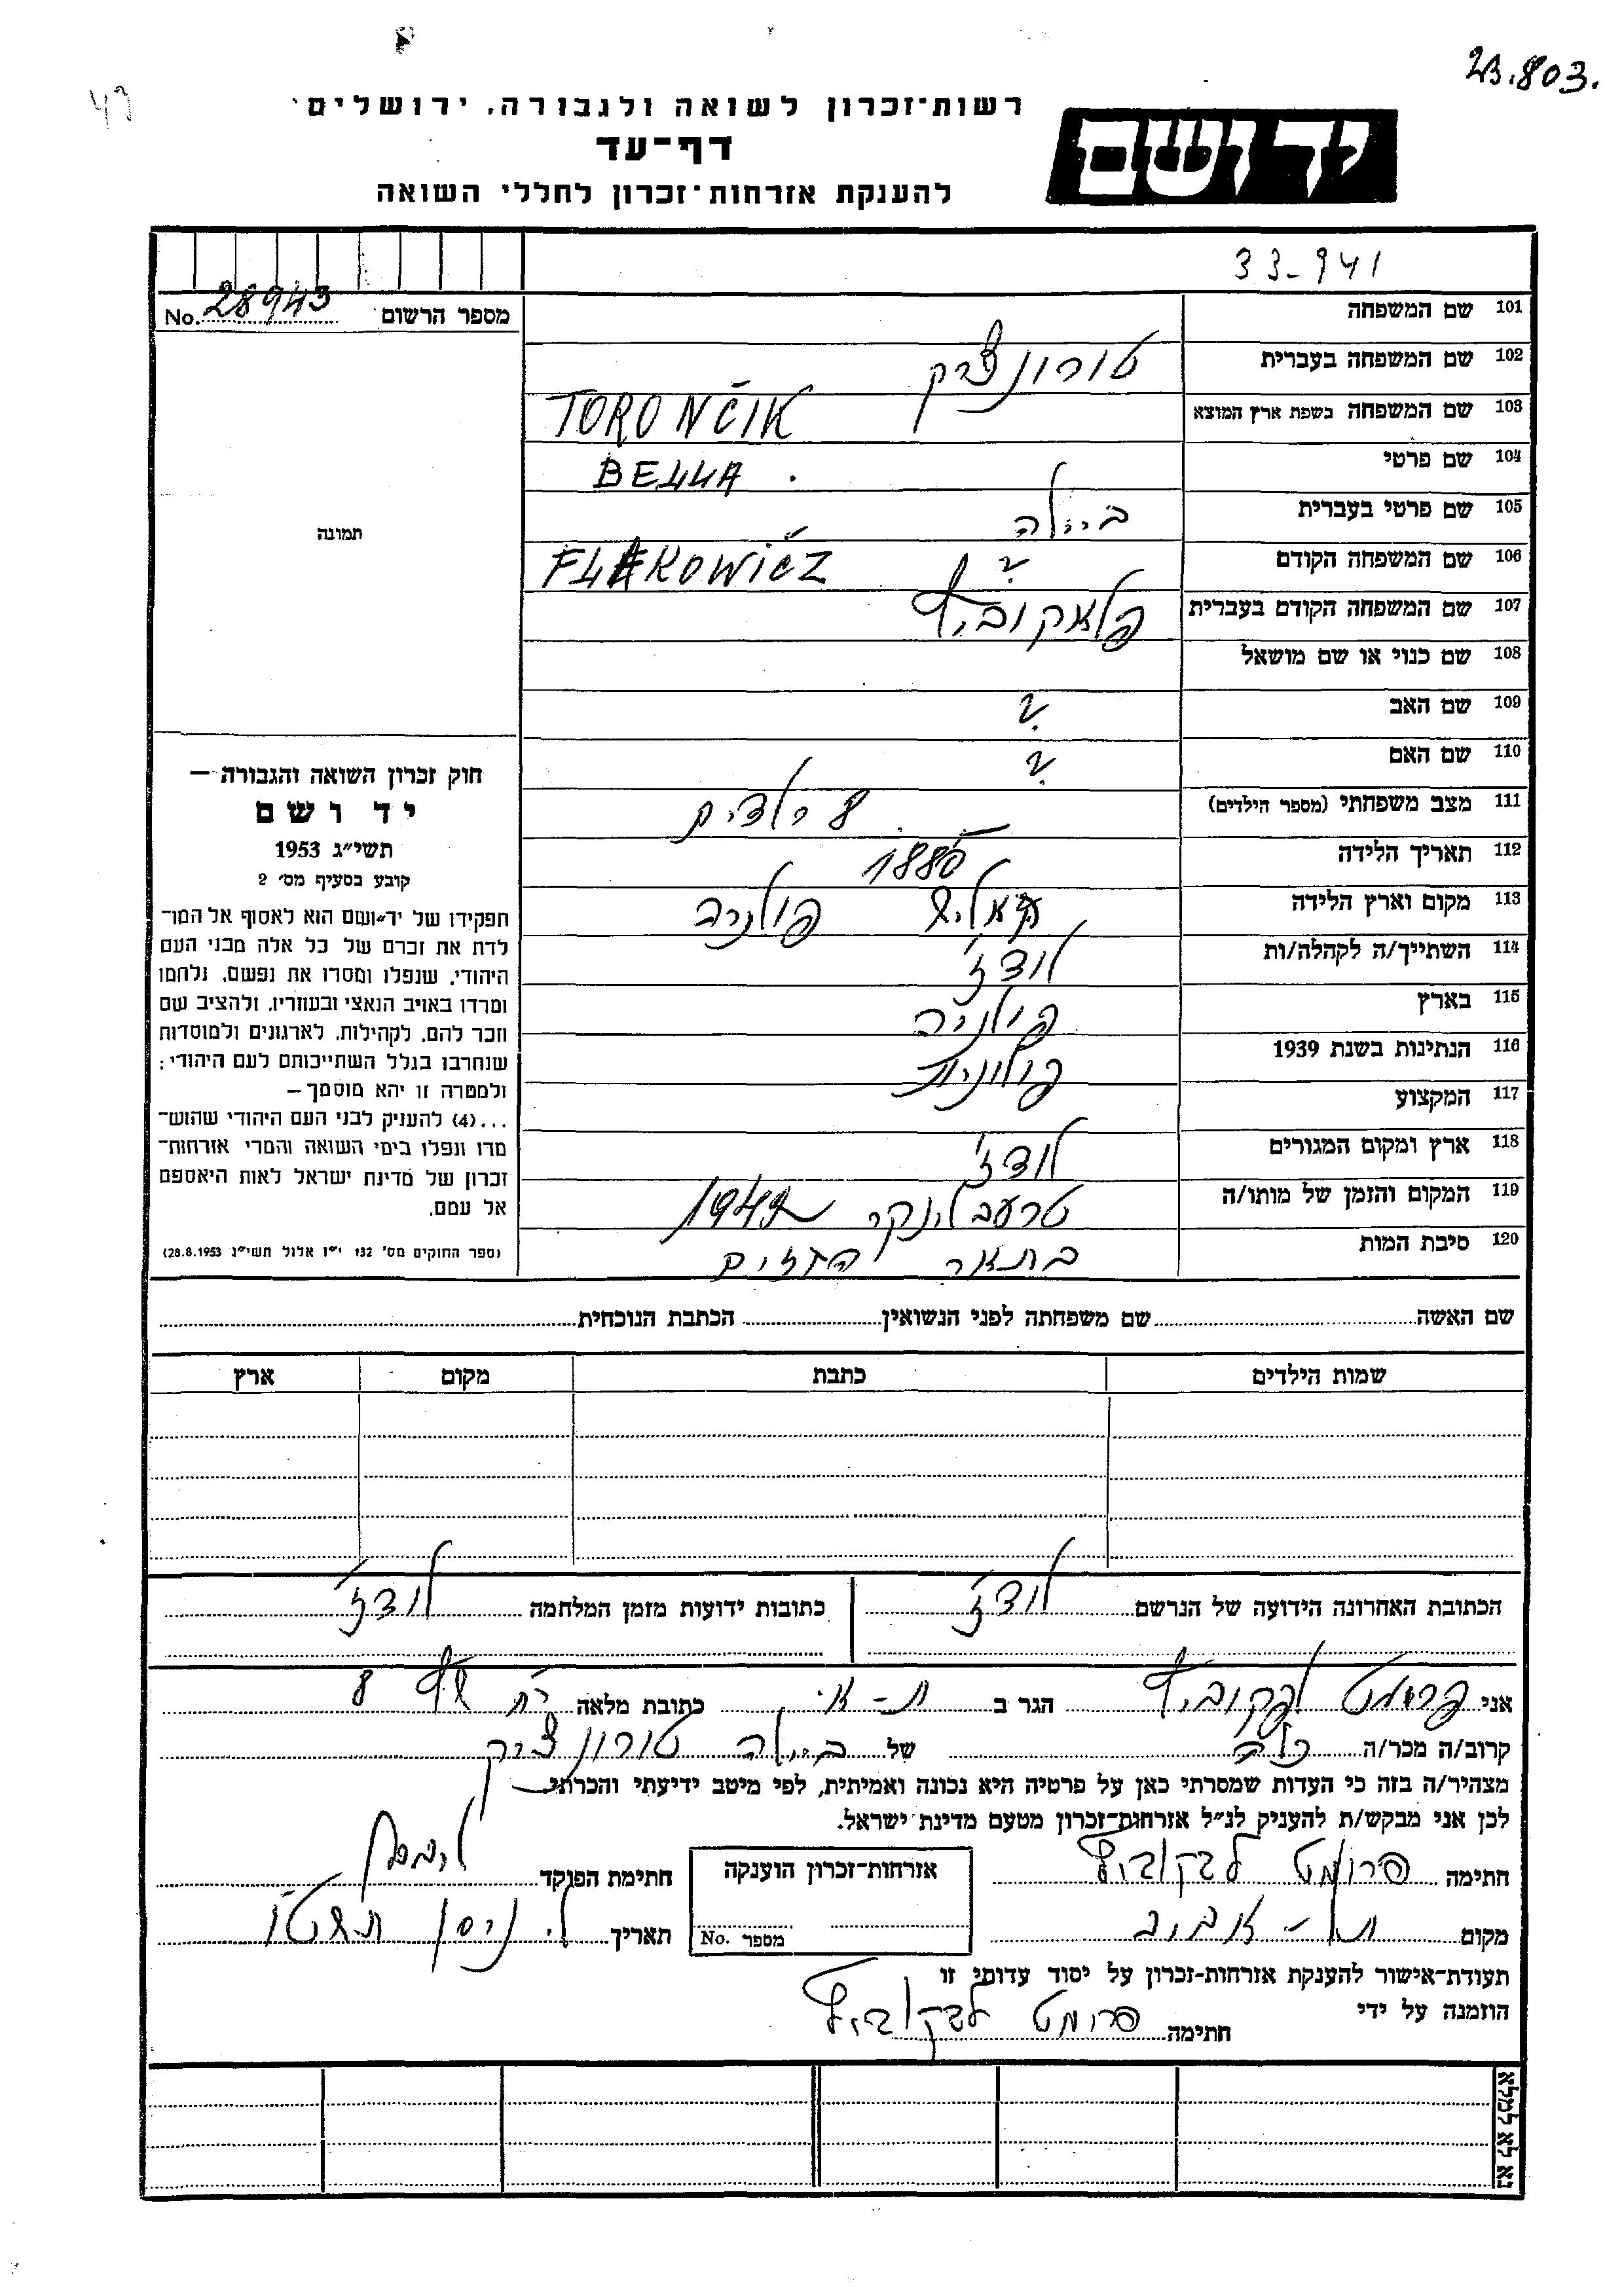 23.803.
רשות־זכרון לשואה ולגבורה, ירושלים
דף־עד
להענקת אזרחות־זכרון לחללי השואה
יד ושם
33-941
מספר הרשום No. 28943
תמונה
101 שם המשפחה
102 שם המשפחה בעברית טורונצ'יק
103 שם המשפחה בשפת ארץ המוצא TORONČIK
104 שם פרטי BELLA
105 שם פרטי בעברית ביילה
106 שם המשפחה הקודם ? FLAKOWICZ
107 שם המשפחה הקודם בעברית פלאקוביץ
108 שם כנוי או שם מושאל
109 שם האב ?
110 שם האם ?
111 מצב משפחתי (מספר הילדים) 8 ילדים
112 תאריך הלידה
113 מקום וארץ הלידה פולניה
114 השתייך/ה לקהלה/ות לודז'
115 בארץ פולניה
116 הנתינות בשנת 1939 פולונית
117 המקצוע
118 ארץ ומקום המגורים לודז'
119 המקום והזמן של מותו/ה טרעבלינקי 1942
120 סיבת המות בתאר הגזים
חוק זכרון השואה והגבורה —
יד ושם
תשי״ג 1953
קובע בסעיף מס׳ 2
תפקידו של יד־ושם הוא לאסוף אל המו־
לדת את זכרם של כל אלה מבני העם
היהודי, שנפלו ומסרו את נפשם, נלחמו
ומרדו באויב הנאצי ובעוזריו, ולהציב שם
וזכר להם, לקהילות, לארגונים ולמוסדות
שנחרבו בגלל השתייכותם לעם היהודי;
ולמטרה זו יהא מוסמך —
...(4) להעניק לבני העם היהודי שהוש־
מדו ונפלו בימי השואה והמרי אזרחות־
זכרון של מדינת ישראל לאות היאספם
אל עמם.
(ספר החוקים מס׳ 132 י״ז אלול תשי״ג 28.8.1953)
שם האשה שם משפחתה לפני הנשואין הכתבת הנוכחית
שמות הילדים כתבת מקום ארץ
הכתובת האחרונה הידועה של הנרשם לודז'
כתובות ידועות מזמן המלחמה לודז'
אני פרומט לבקוביץ הגר ב ת-א. כתובת מלאה 8
קרוב/ה מכר/ה כלה של ביילה טורונצ'יק
מצהיר/ה בזה כי העדות שמסרתי כאן על פרטיה היא נכונה ואמיתית, לפי מיטב ידיעתי והכרתי.
לכן אני מבקש/ת להעניק לנ״ל אזרחות־זכרון מטעם מדינת ישראל.
חתימה פרומט לבקוביץ
אזרחות־זכרון הוענקה
חתימת הפוקד
מקום תל-אביב
מספר No.
תאריך ל' ניסן תשט"ו
תעודת־אישור להענקת אזרחות־זכרון על יסוד עדותי זו
הוזמנה על ידי
חתימה פרומט לבקוביץ
נא לא למלא